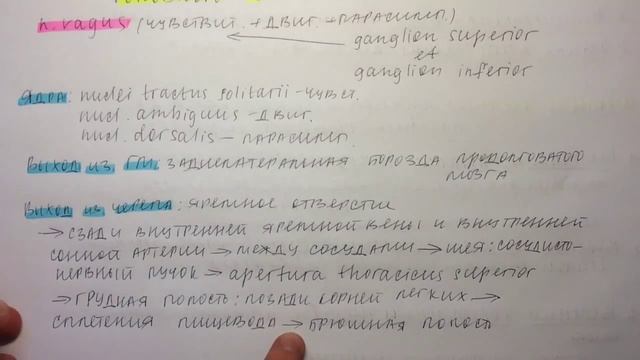 n. vagus (чувствит. + двиг. + парасимп.)
ganglion superior
et
ganglion inferior
Ядра: nuclei tractus solitarii - чувст.
nucl. ambiguus - двиг.
nucl. dorsalis - парасимп.
Выход из ГМ: заднелатеральная борозда продолговатого
мозга
Выход из черепа: яремное отверстие
→ сзади внутренней яремной вены и внутренней
сонной артерии → между сосудами → шея: сосудисто-
нервный пучок → apertura thoracicus superior
→ грудная полость: позади корней легких →
сплетения пищевода → брюшная полость